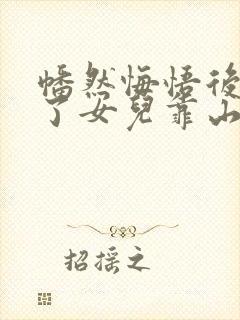 幡然悔悟後
了女兒靠山
招摇之